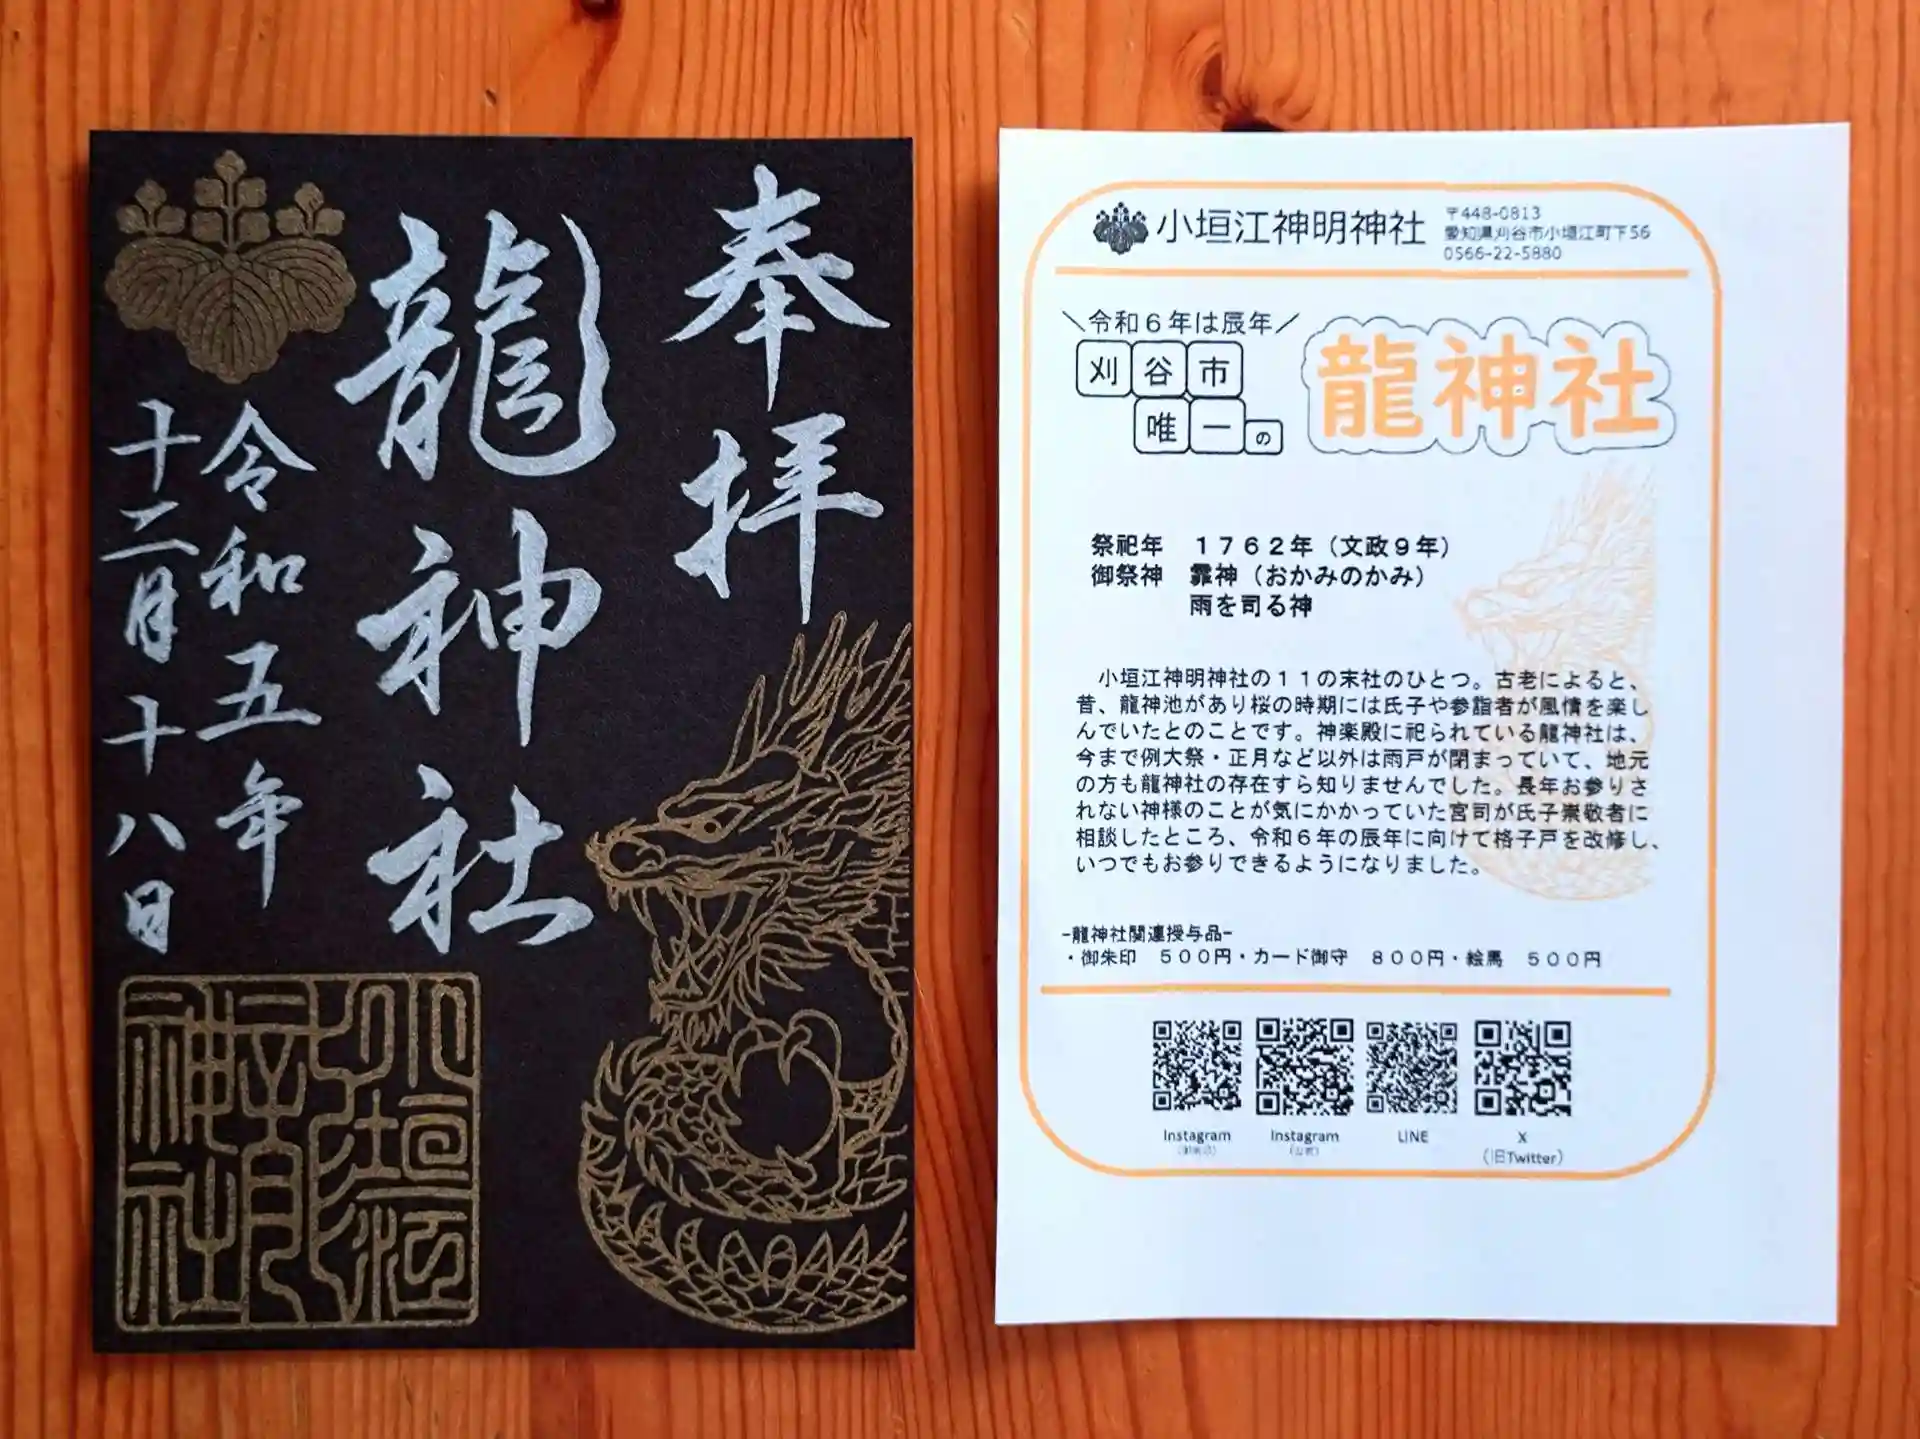 奉拝
龍神社
令和五年
十二月十八日
小垣江
神明
神社
小垣江神明神社
〒448-0813
愛知県刈谷市小垣江町下56
0566-22-5880
＼令和６年は辰年／
刈谷市
唯一の
龍神社
祭祀年　１７６２年（文政９年）
御祭神　霏神（おかみのかみ）
雨を司る神
小垣江神明神社の１１の末社のひとつ。古老によると、
昔、龍神池があり桜の時期には氏子や参詣者が風情を楽し
んでいたとのことです。神楽殿に祀られている龍神社は、
今まで例大祭・正月など以外は雨戸が閉まっていて、地元
の方も龍神社の存在すら知りませんでした。長年お参りさ
れない神様のことが気にかかっていた宮司が氏子崇敬者に
相談したところ、令和６年の辰年に向けて格子戸を改修し、
いつでもお参りできるようになりました。
-龍神社関連授与品-
・御朱印　５００円・カード御守　８００円・絵馬　５００円
Instagram
（御朱印）
Instagram
（公式）
LINE
X
（旧Twitter）